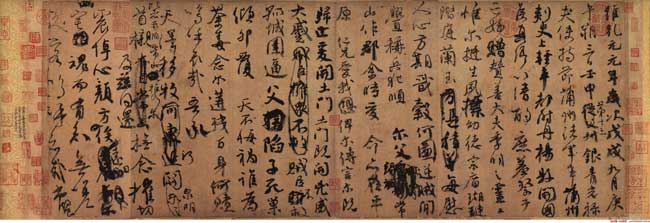 維乾元元年歲次戊戌九月庚
午朔三日壬申第十三叔銀青光祿
夫使持節蒲州諸軍事蒲州
刺史上輕車都尉丹陽縣開國
侯真卿以清酌庶羞祭于
亡姪贈贊善大夫季明之靈曰
惟爾挺生夙標幼德宗廟瑚璉
階庭蘭玉每慰
人心方期戩穀何圖逆賊間
釁稱兵犯順爾父竭誠常
山作郡余時受命亦在平
原仁兄愛我俾爾傳言爾既
歸止爰開土門土門既開凶威
大蹙賊臣不救
孤城圍逼父陷子死巢
傾卵覆天不悔禍誰為
荼毒念爾遘殘百身何贖
嗚呼哀哉吾承
天澤移牧河關泉明
首櫬及茲同還撫念摧切
震悼心顏方俟
幽宅魂而有知無嗟
久客嗚呼哀哉尚饗